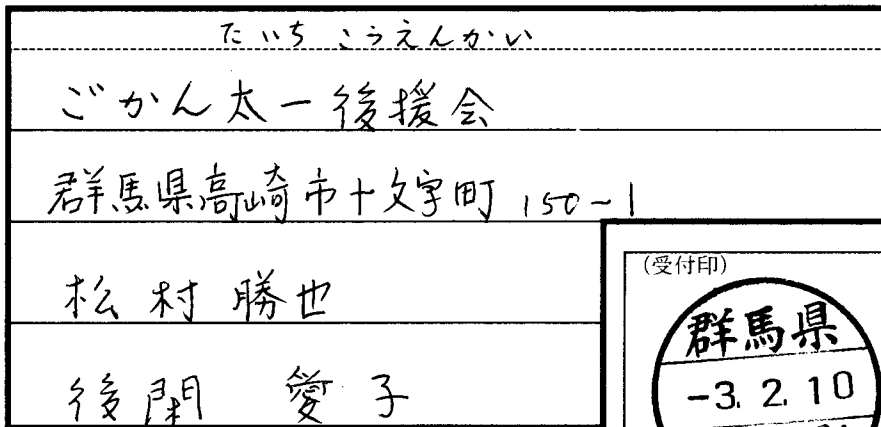 たいち こうえんかい
ごかん太一後援会
群馬県高崎市十文字町 150-1
松村勝也
後閑 愛子
(受付印)
群馬県
-3. 2. 10